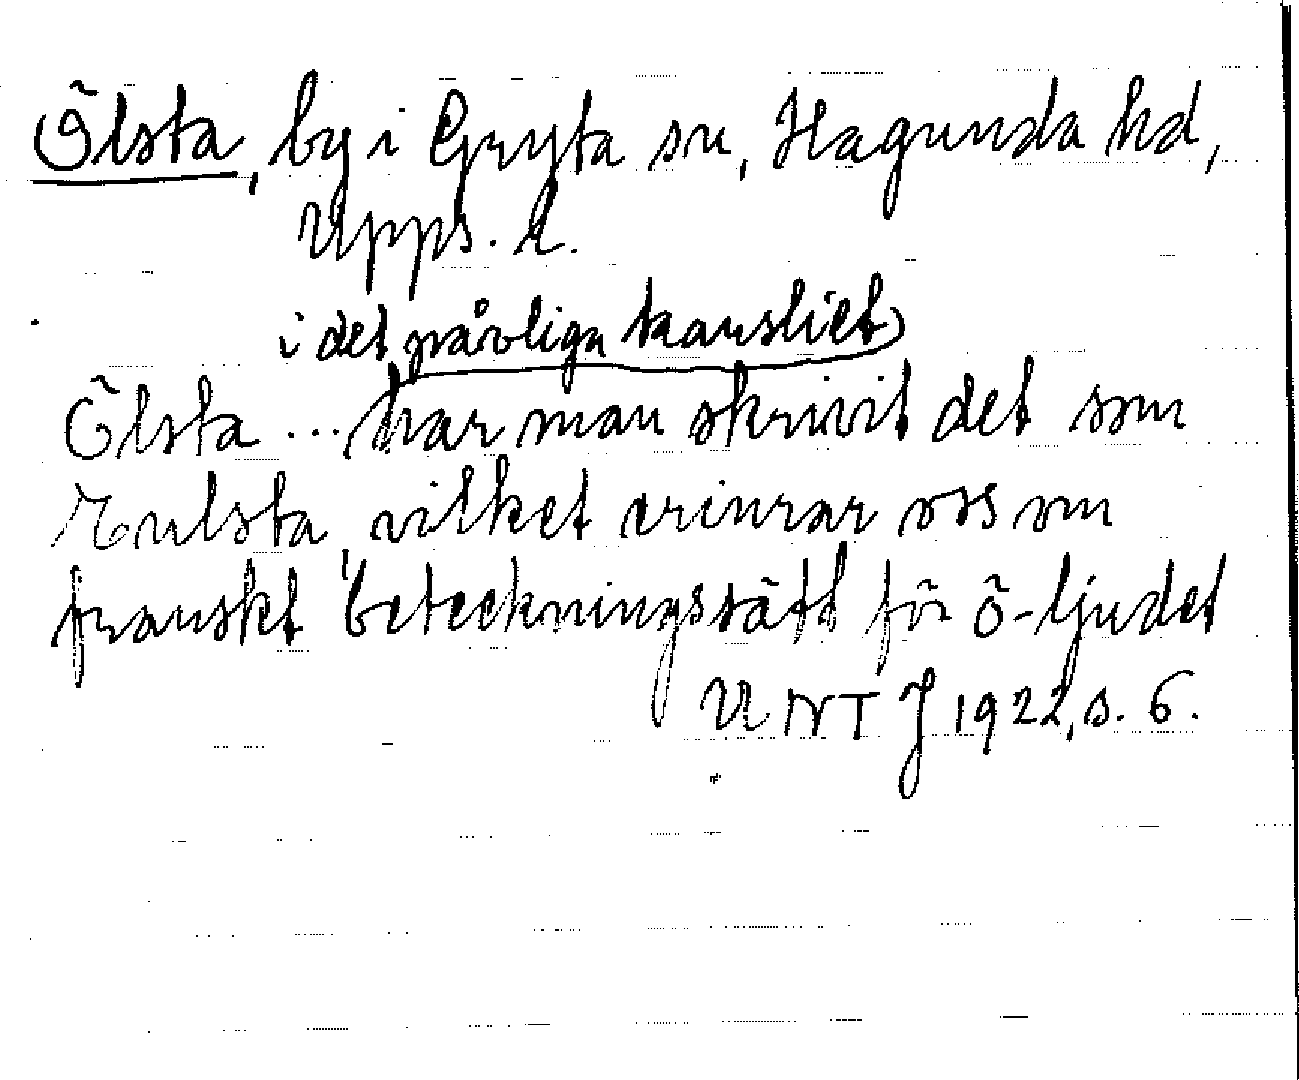 Ölsta, by i Gryta sn, Hagunda hd,
Upps. l.
i det påvliga kansliet
Ölsta ... har man skrivit det som
Eulsta, vilket erinrar oss om
franskt beteckningssätt för ö-ljudet
UNT J 1922, s. 6.